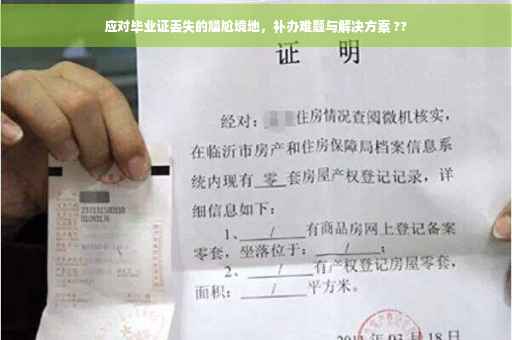 应对毕业证丢失的尴尬境地，补办难题与解决方案 ??
证 明
经对：住房情况查阅微机核实，
在临沂市房产和住房保障局档案信息系
统内现有 零 套房屋产权登记记录，详
细信息如下：
1、 / 有商品房网上登记备案
零套，坐落位于： / ；
2、 / 有产权登记房屋零套，
面积： / 平方米。
03 月 18 日